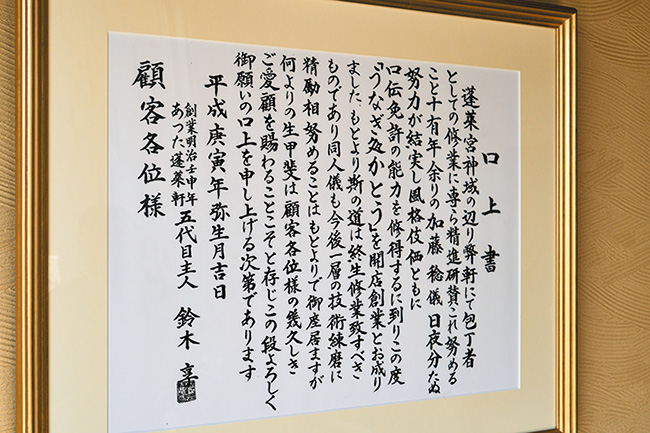 口上書
蓬莱宮神域の辺り弊軒にて包丁者
としての修業に専ら精進研賛これ努める
こと十有年余りの加藤稔儀日夜分たぬ
努力が結実し風格伎価ともに
口伝免許の能力を修得するに到りこの度
「うなぎ処かとう」を開店創業とお成り
ました。もとより斯の道は終生修業致すべき
ものであり同人儀も今後一層の技術練磨に
精励相努めることはもとよりで御座居ますが
何よりの生甲斐は顧客各位様の幾久しき
ご愛顧を賜わることこそと存じこの段よろしく
御願いの口上を申し上げる次第であります
平成庚寅年弥生月吉日
創業明治壬申年
あつた蓬莱軒 五代目主人 鈴木 享
顧客各位様